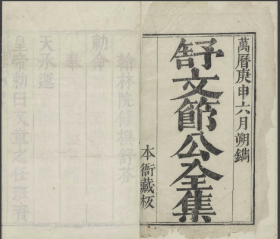 萬曆庚申六月朔鐫
舒文節公全集
本衙藏板
翰林院修撰舒芬
奉
勅命
天承運
皇帝勅曰文章之任